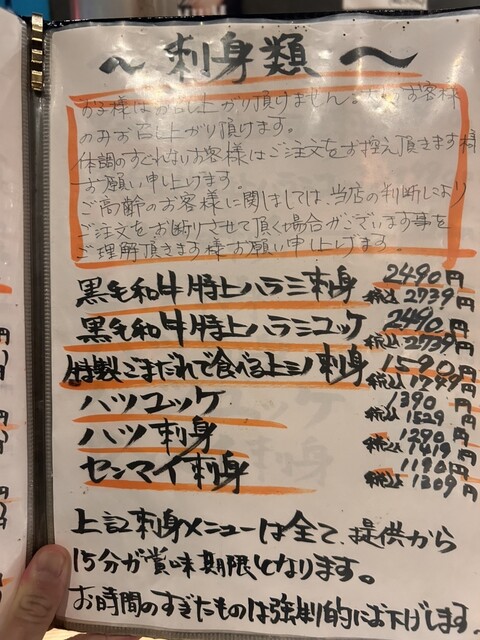 ～刺身類～
お子様はお召し上がり頂けません。大人のお客様
のみお召し上がり頂けます。
体調のすぐれないお客様はご注文をお控え頂きます様
お願い申し上げます。
ご高齢のお客様に関しましては、当店の判断により
ご注文をお断りさせて頂く場合がございます事を
ご理解頂きます様お願い申し上げます。
黒毛和牛特上ハラミ刺身 2490円
税込2739円
黒毛和牛特上ハラミユッケ 2490円
税込2739円
特製ごまだれで食べる上ミノ刺身 1590円
税込1749円
ハツユッケ 1390円
税込1529円
ハツ刺身 1290円
税込1419円
センマイ刺身 1190円
税込1309円
上記刺身メニューは全て、提供から
15分が賞味期限となります。
お時間のすぎたものは強制的にお下げします。